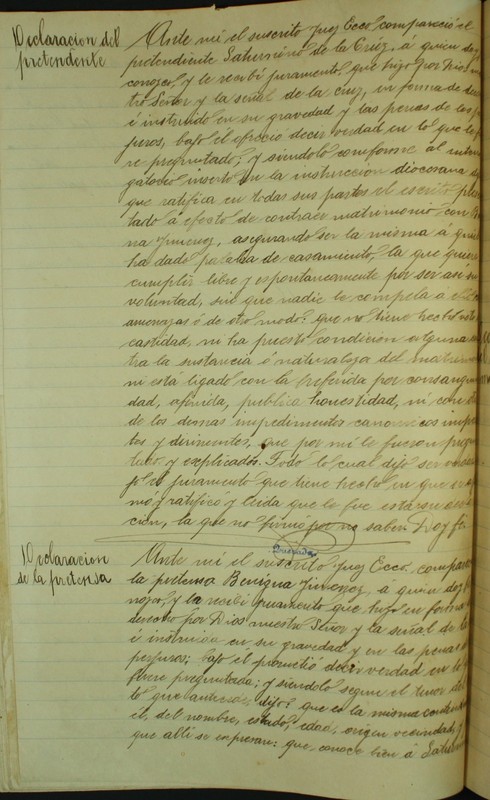 Declaracion del
pretendente
Ante mi el suscrito Juez Ecco. compareció el
pretendiente Saturnino de la Cruz, á quien doy
conozco, y le recibí juramento, que hizo por Dios
tro Señor y la señal de la Cruz, en forma de
é instruido en su gravedad y las penas de los
juros, bajo él ofreció decir verdad en lo que
re preguntado; y siendolo conforme al
gatorio inserto en la instruccion diocesana
que ratifica en todas sus partes el escrito
tado á efecto de contraer matrimonio con
na Jimenez, asegurando ser la misma á
ha dado palabra de casamiento, la que quiere
cumplir libre y espontaneamente por ser
voluntad, sin que nadie le compela a
amenazas ó de otro modo: que no tiene hecho
castidad, ni ha puesto condicion alguna
tra la sustancia ó naturaleza del
ni está ligado con la referida por
dad, afinida, publica honestidad, ni con
de los demas impedimentos canonicos
tos y dirimentes, que por mi le fueron
tados y explicados. Todo lo cual dijo ser
jo el juramento que tiene hecho en que
mó y ratificó y leida que le fue esta su
cion, la que no firmo por no saber. Doy fé.
Quezada
Declaracion
de la pretensa
Ante mi el suscrito Juez Ecco. compare
la pretensa Benigna Jimenez, á quien doy
nozco, y la recibí juramento que hizo en forma
derecho por Dios nuestro Señor y la señal de la
é instruida en su gravedad y en las penas
perjuros; bajo él prometió decir verdad en lo
fuere preguntada; y siendolo segun el tenor
lo que antecede, dijo: que es la misma
él, del nombre, estado, edad, origen vecindad, y
que alli se expresan: que, conoce bien á